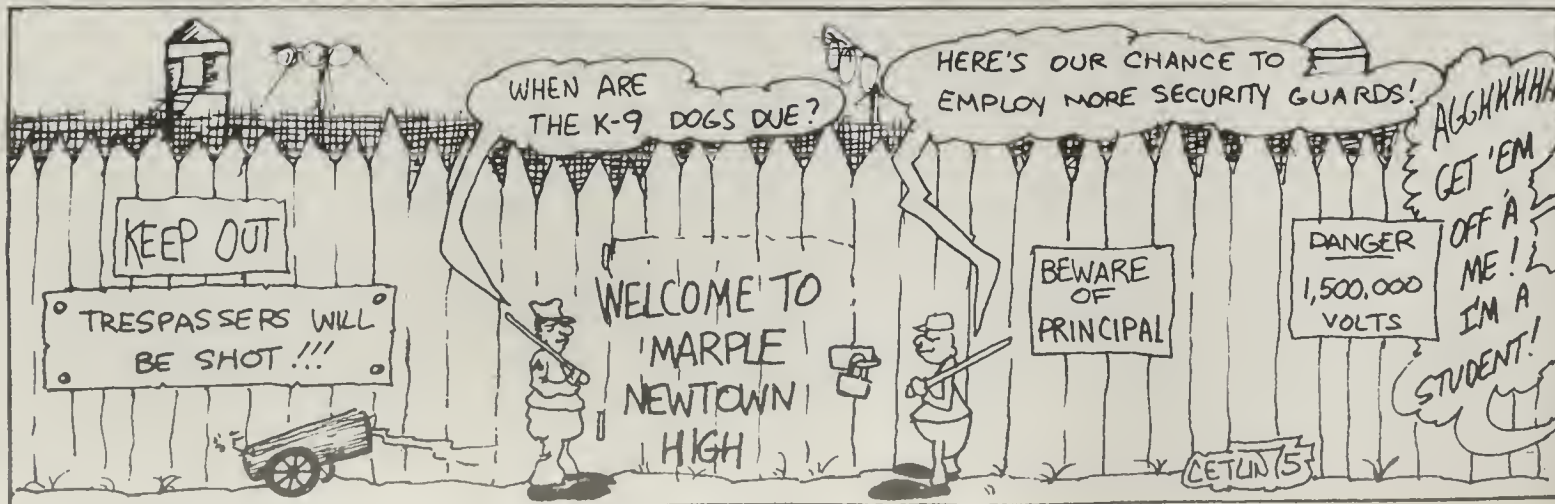 KEEP OUT
TRESPASSERS WILL
BE SHOT !!!
WHEN ARE
THE K-9 DOGS DUE?
WELCOME TO
MARPLE
NEWTOWN
HIGH
HERE'S OUR CHANCE TO
EMPLOY MORE SECURITY GUARDS!
BEWARE
OF
PRINCIPAL
DANGER
1,500,000
VOLTS
AGGHHHHH
GET 'EM
OFF 'A
ME!
I'M A
STUDENT!
CETLIN 5